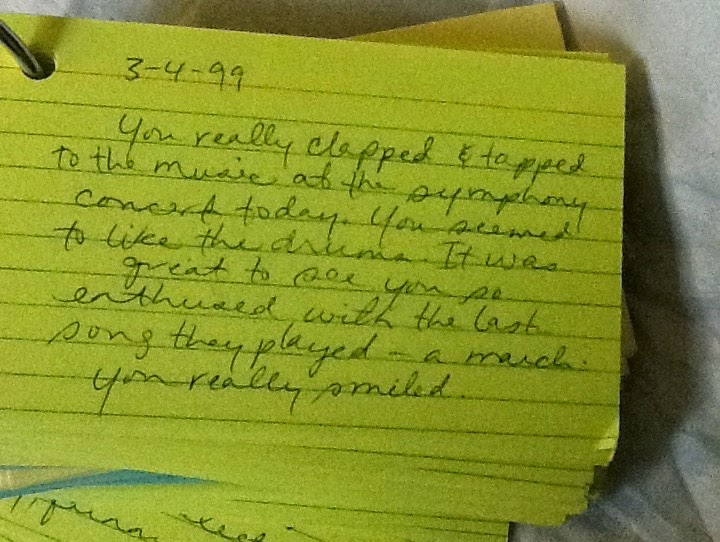 3-4-99
You really clapped & tapped
to the music at the symphony
concert today. You seemed
to like the drums. It was
great to see you so
enthused with the last
song they played - a march.
You really smiled.